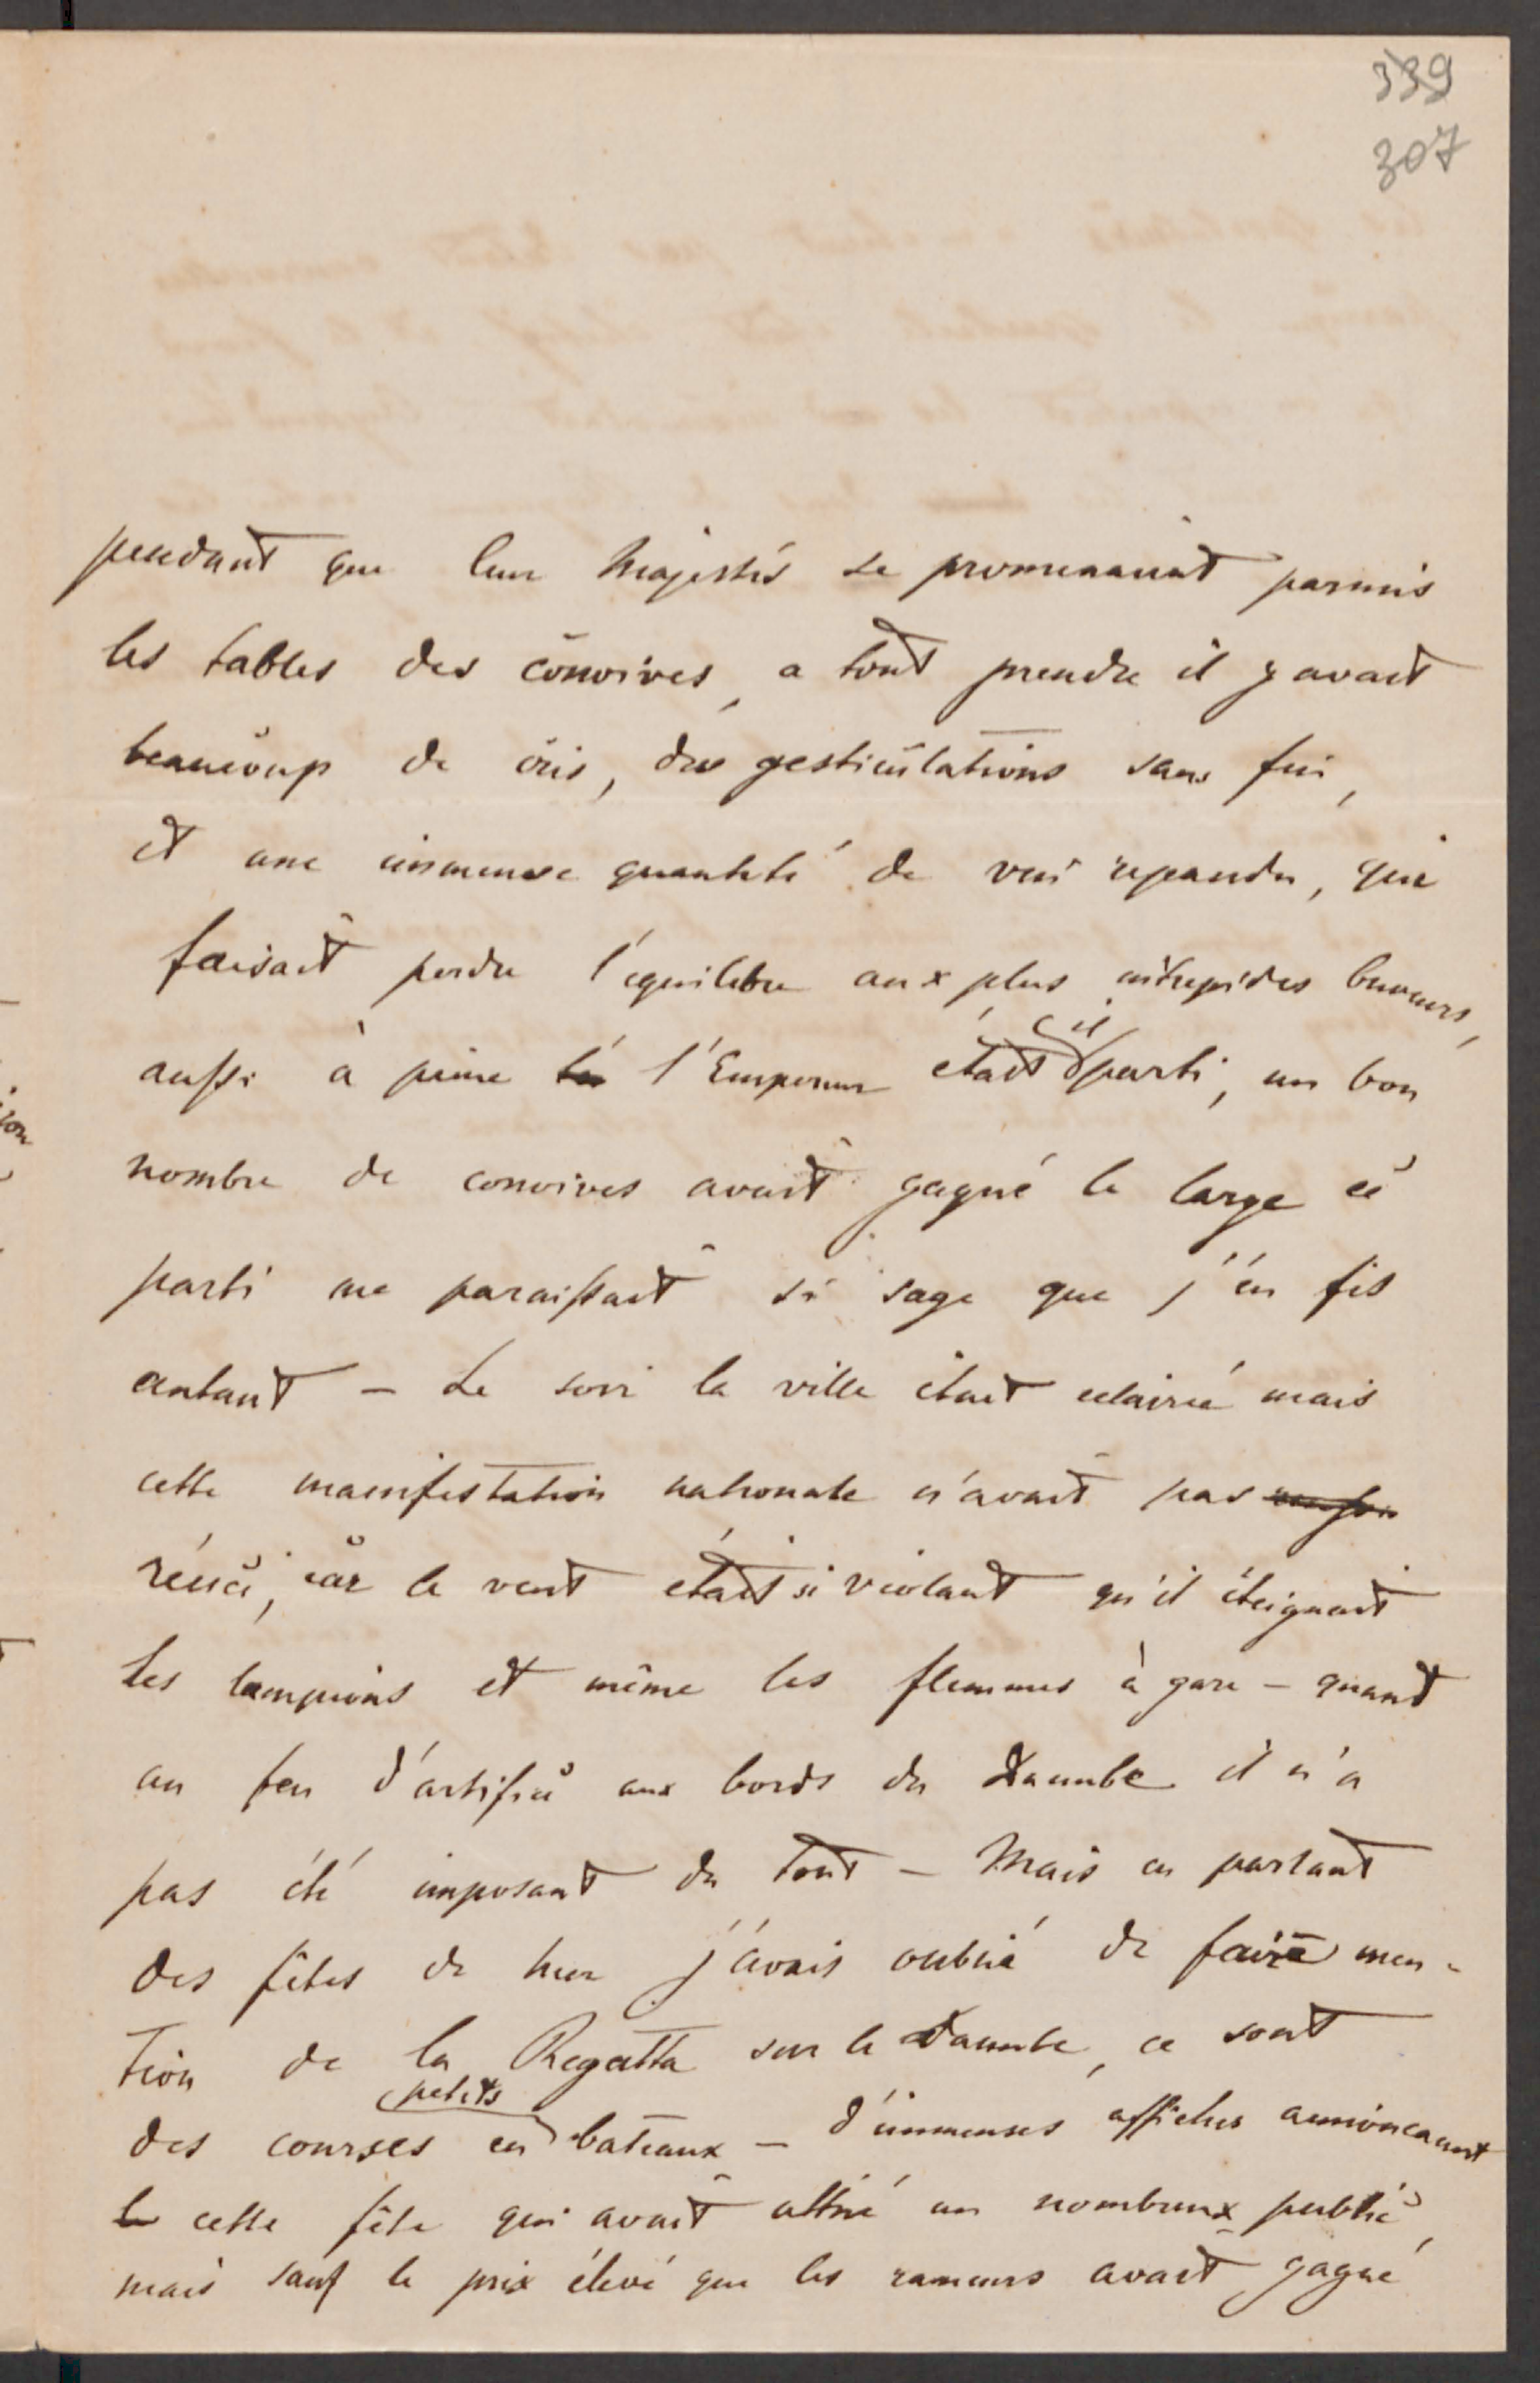 339
307
pendant que leur Majestés se promenaient parmis
les tables des convives, a tout prendre il y avait
beaucoup de cris, des gesticulations sans fin,
et une immense quantité de vin repandu, qui
faisait perdre l'equilibre aux plus intrepides buveurs,
aussi à peine l'Empereur était-il parti, un bon
nombre de convives avait gagné le large ce
parti me paraissait si sage que j'en fis
autant – Le soir la ville était eclairée mais
cette manifestation nationale n'avait pas
réussi, car le vent était si violant qu'il éteignait
les lampions et même les flammes à gaze – quant
au feu d'artifice aux bords du Danube il n'a
pas été imposant du tout – Mais en parlant
des fêtes de hier j'avais oublié de faire men-
tion de la Regatta sur le Danube, ce sont
des courses en petits bateaux – d'immenses affiches annoncaient
cette fête qui avait attiré un nombreux public,
mais sauf le prix élevé que les rameurs avait gagné